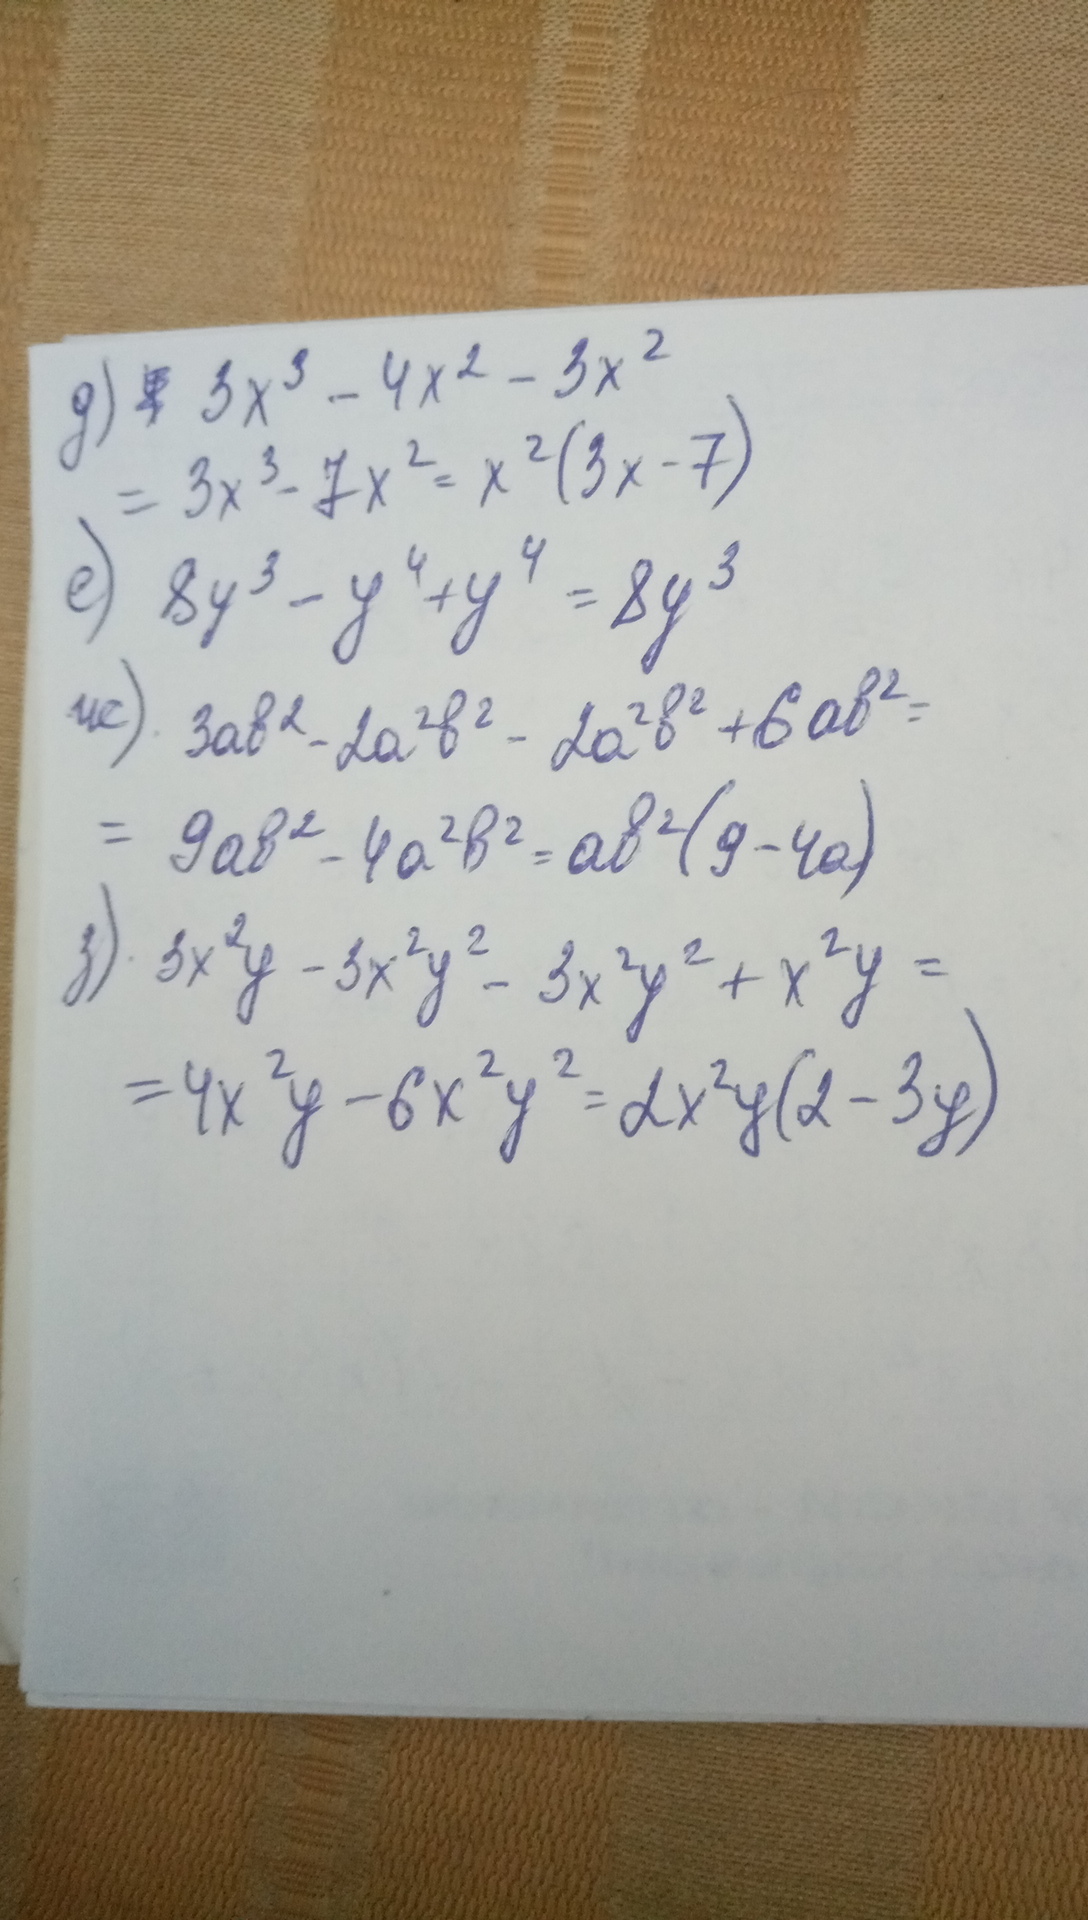 д) 3x³ - 4x² - 3x²
= 3x³ - 7x² = x²(3x - 7)
е) 8y³ - y⁴ + y⁴ = 8y³
ж) 3ab² - 2a²b² - 2a²b² + 6ab² =
= 9ab² - 4a²b² = ab²(9 - 4a)
з) 3x²y - 3x²y² - 3x²y² + x²y =
= 4x²y - 6x²y² = 2x²y(2 - 3y)